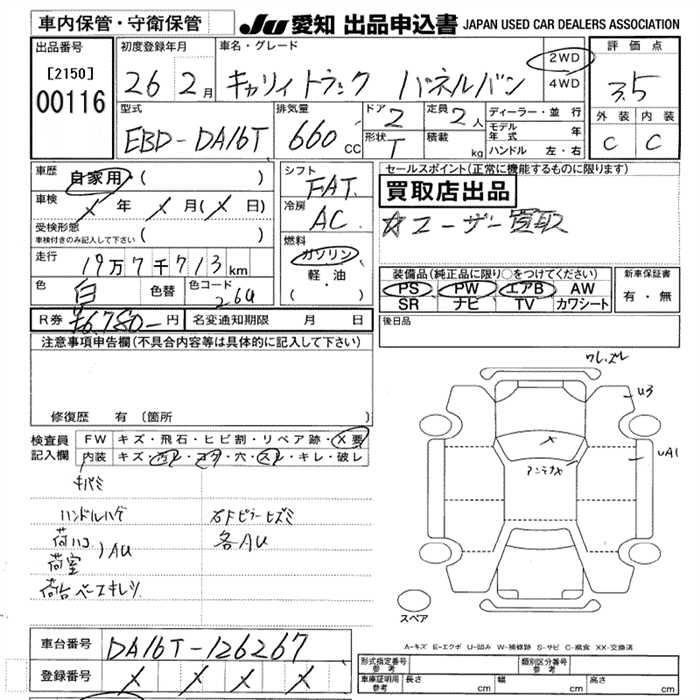 車内保管・守衛保管 JU 愛知 出品申込書 JAPAN USED CAR DEALERS ASSOCIATION
出品番号 初度登録年月 車名・グレード 評価点
[2150] 26 2月 キャリィトラック パネルバン 2WD 4WD 3.5
00116
型式 排気量 ドア 2 定員 2人 ディーラー・並行 外装 内装
EBD-DA16T 660cc 形状 T 積載 kg モデル年式 年 C C
ハンドル 左・右
車歴 自家用・( ) シフト FAT セールスポイント(正常に機能するものに限ります)
車検 X 年 X 月(X 日) 冷房 AC 買取店出品
受検形態 車検付きのみ記入して下さい ( ) ☆ユーザー買取
走行 19万7千713km 燃料 ガソリン 軽・油 ・( )
装備品(純正品に限り○をつけてください) 新車保証書
色 白 色替 色コード 26U PS PW エアB AW 有・無
SR ナビ TV カワシート
R券 ¥6,780-円 名変通知期限 月 日 後日品
注意事項申告欄(不具合内容等は具体的に記入して下さい)
ワレ、ズレ
U3
修復歴 有 (箇所 )
検査員記入欄 FW キズ・飛石・ヒビ割・リペア跡・X要
内装 キズ・汚レ・コゲ・穴・スレ・キレ・破レ
UA1
X
アンテナX
キバミ
ハンドルハゲ 右Fピラーヒズミ
荷ハコ 各AU
荷室 )AU
荷台ベースキレツ
スペア
A-キズ E-エクボ U-凹み W-補修跡 S-サビ C-腐食 XX-交換済
車台番号 DA16T-126267
登録番号 X X X X
形式指定番号 参考 類別区分番号 参考
車庫証明用 参考 長さ cm 幅 cm 高さ cm